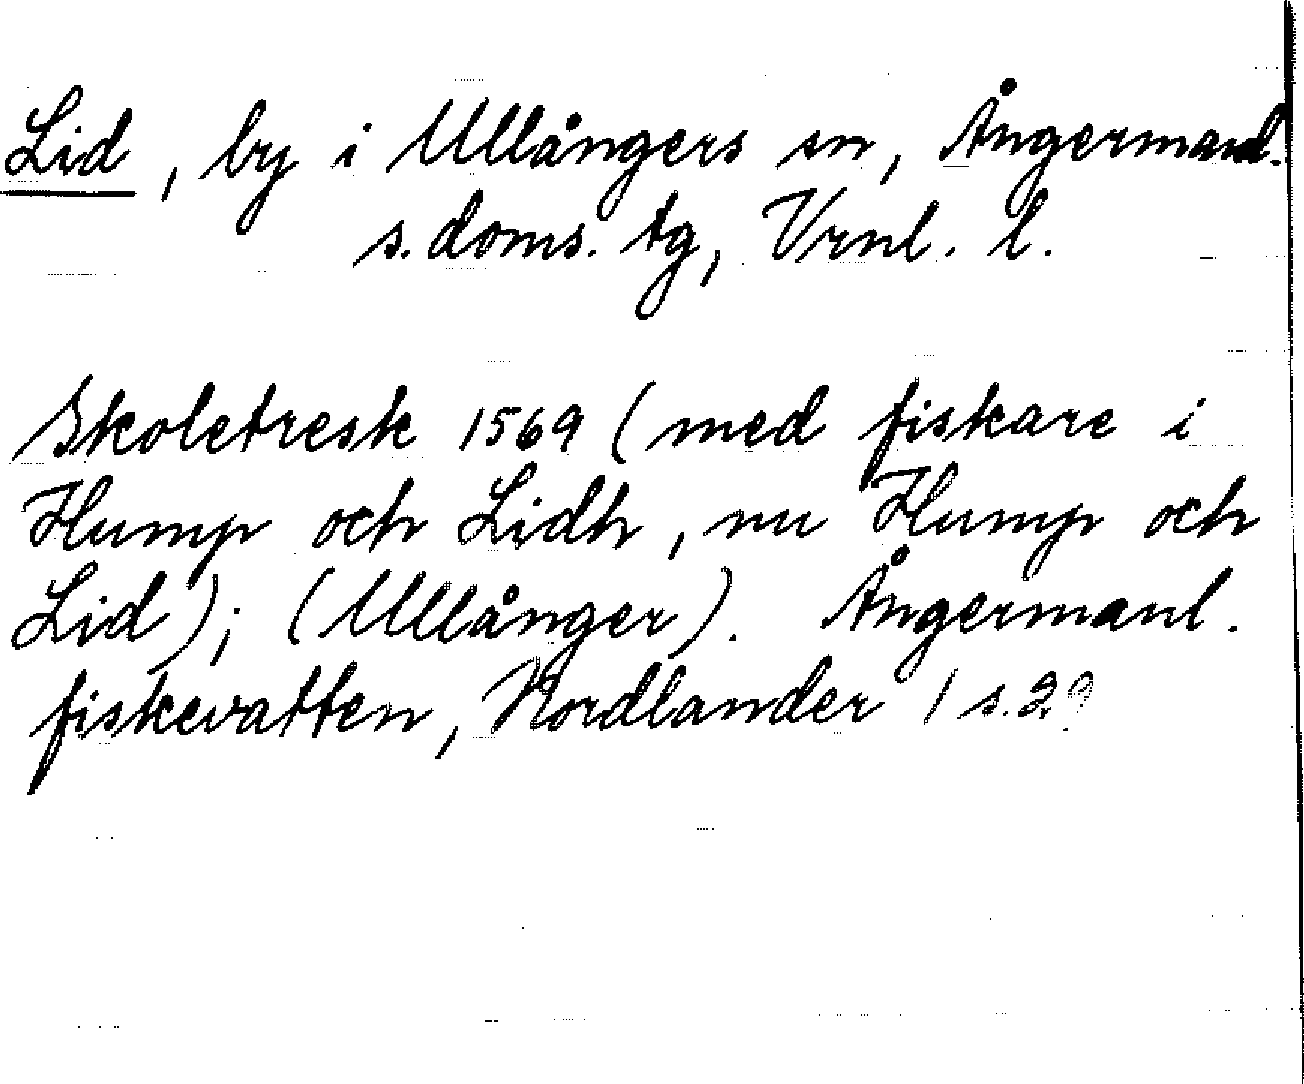 Lid, by i Ullångers sn, Ångermanl.
s. doms. tg, Vrnl. l.
Skoletresk 1569 (med fiskare i
Hump och Lidh, nu Hump och
Lid); (Ullånger). Ångermanl.
fiskevatten, Nordlander / s.